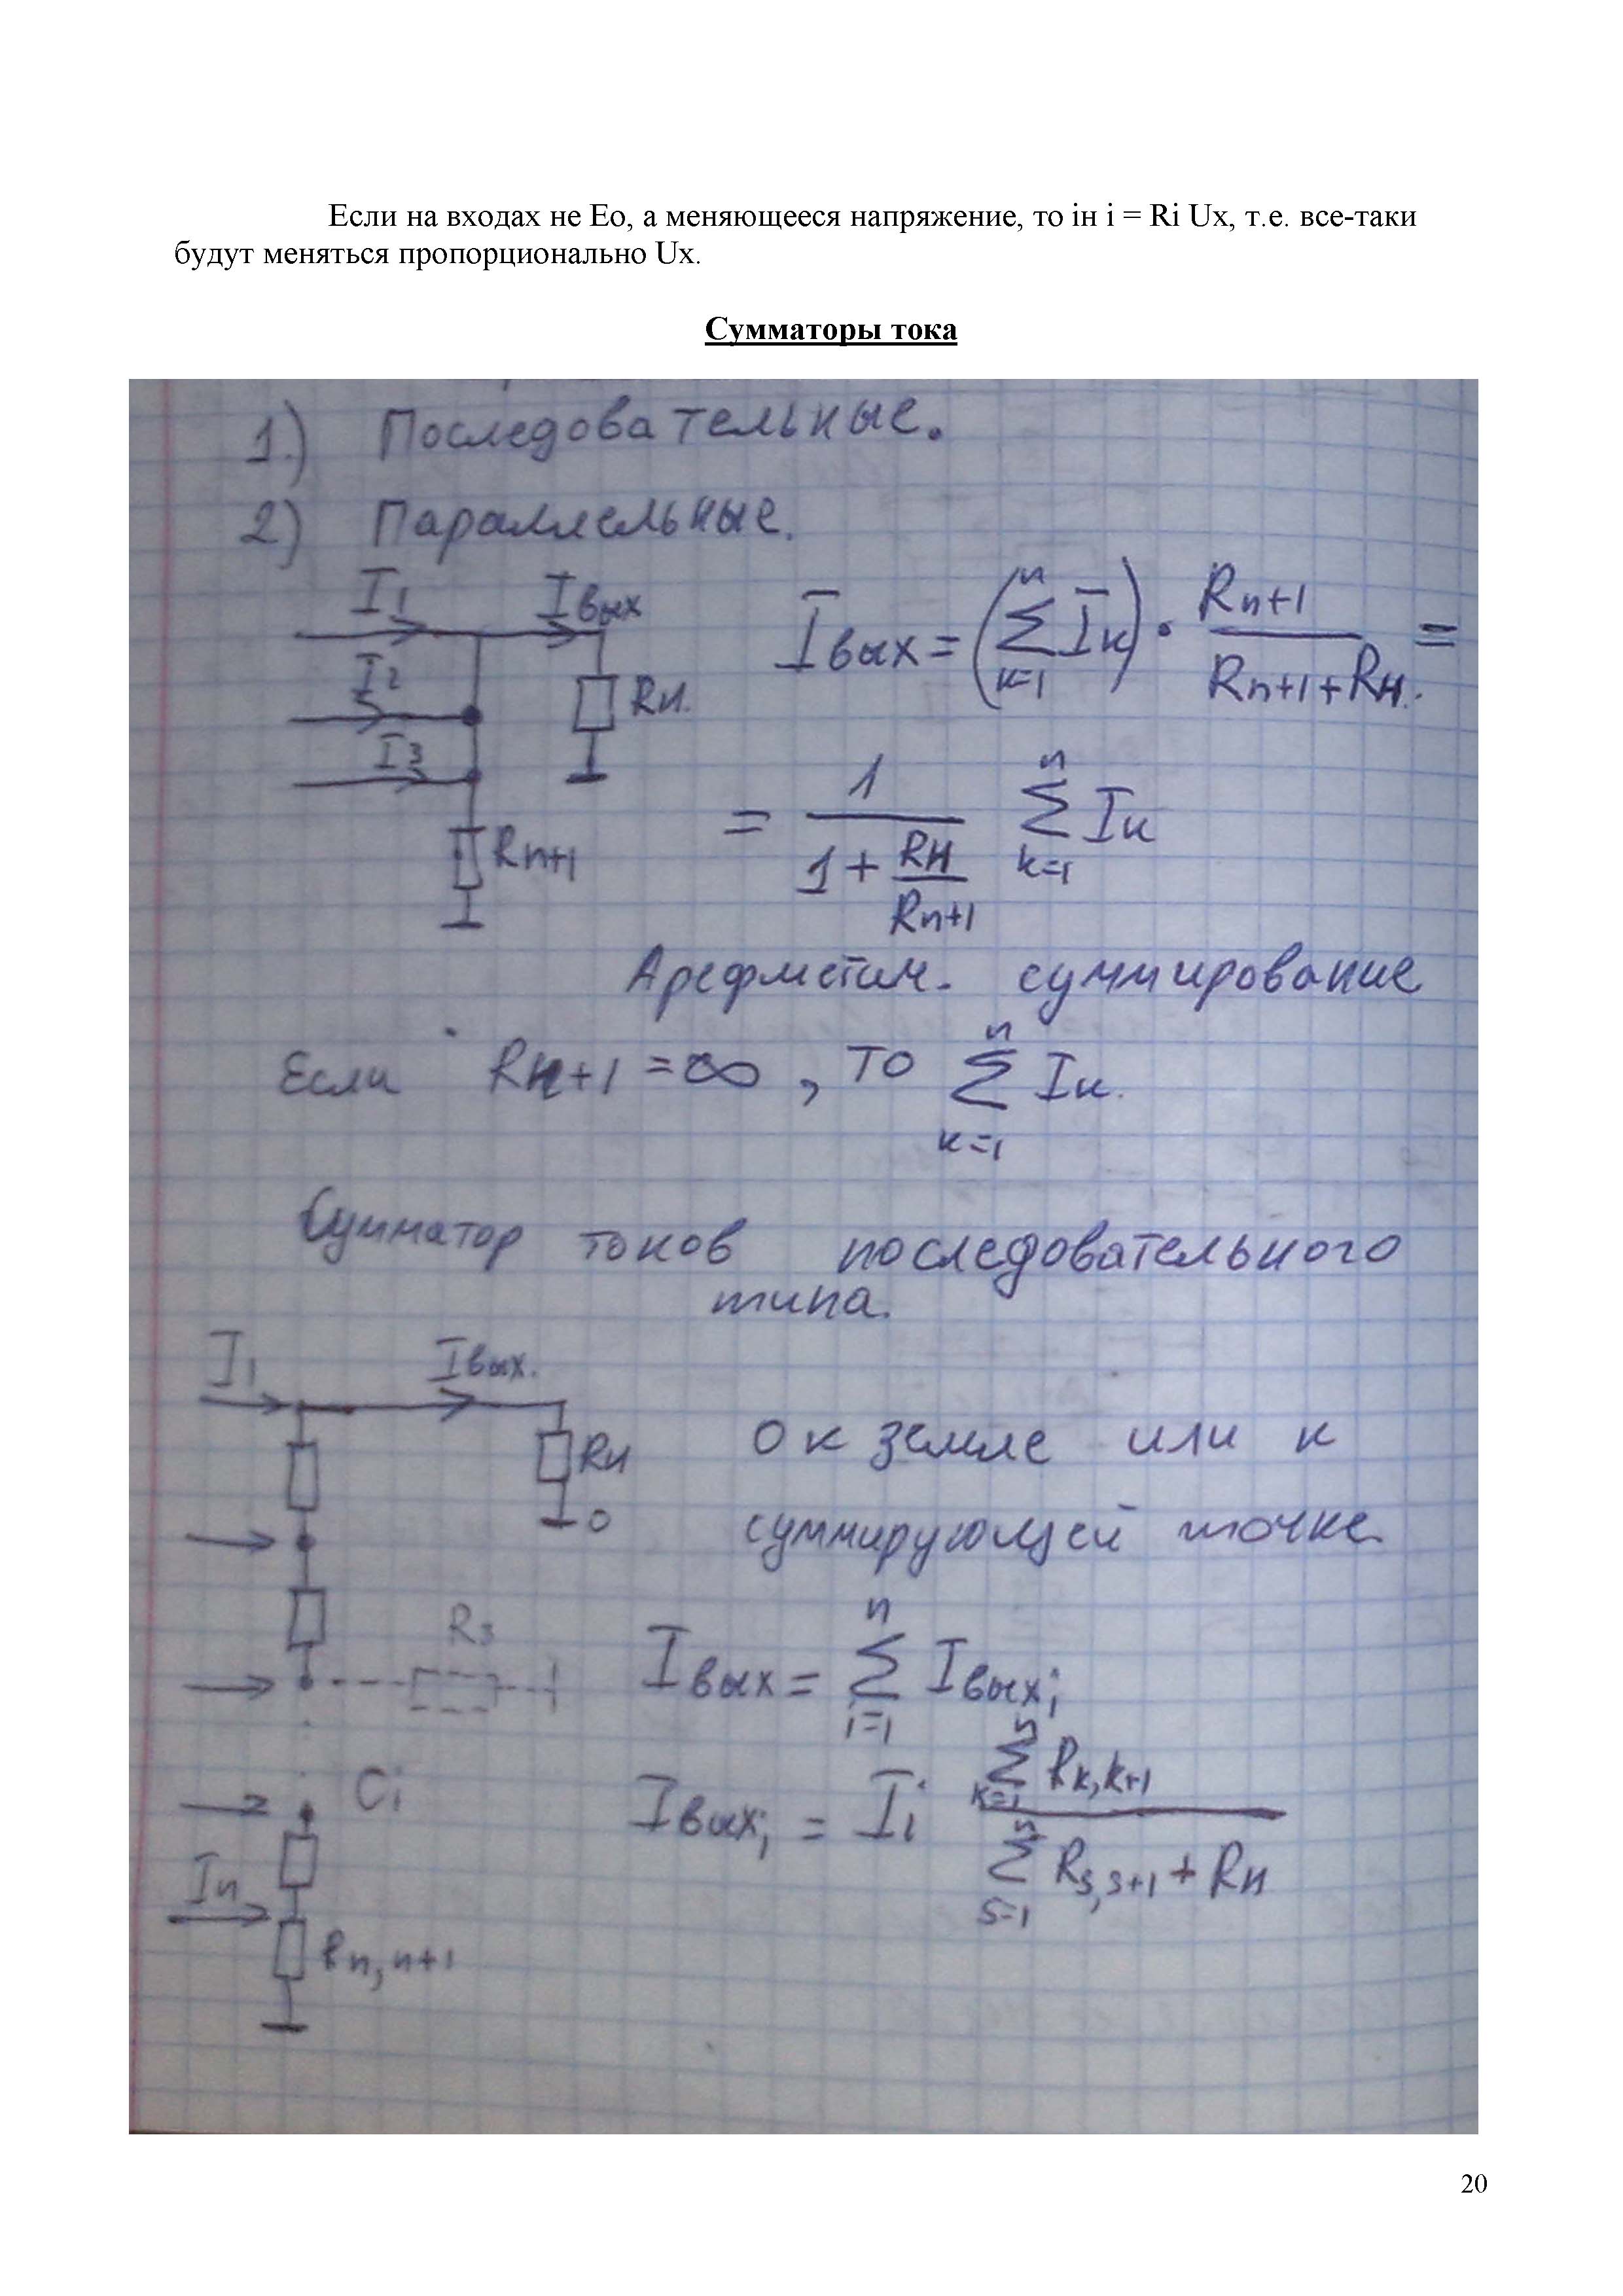 Если на входах не Ео, а меняющееся напряжение, то iн i = Ri Ux, т.е. все-таки
будут меняться пропорционально Ux.
Сумматоры тока
1.) Последовательные.
2) Параллельные.
I1 Iвых
I2
Rн.
I3
Rn+1
Iвых = (∑ n k=1 Iк) · Rn+1 / Rn+1 + Rн. =
= 1 / 1 + Rн / Rn+1 ∑ n k=1 Iк
Арефметич. суммирование
Если Rn+1 = ∞, то ∑ n к=1 Iк.
Сумматор токов последовательного
типа.
I1 Iвых.
Rн
0
0 к земле или к
суммирующей точке.
R3
Iвых = ∑ n i=1 Iвыхi
Ci
Iвыхi = Ii ∑ n k=1 Rk,k+1 / ∑ n s=1 Rs,s+1 + Rн
In
Rn,n+1
20